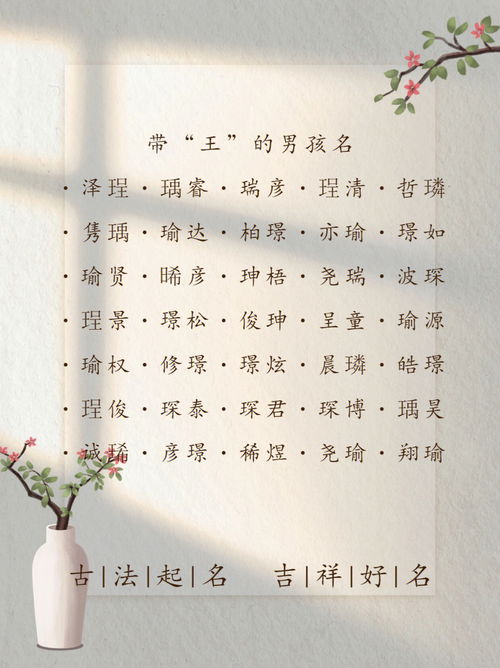 带“王”的男孩名
·泽珵·瑀睿·瑞彦·珵清·哲璘
·隽瑀·瑜达·柏璟·亦瑜·璟如
·瑜贤·晞彦·珅梧·尧瑞·波琛
·珵景·璟松·俊珅·呈童·瑜源
·瑜权·修璟·璟炫·晨璘·皓璟
·珵俊·琛泰·琛君·琛博·瑀昊
·诚琋·彦璟·稀煜·尧瑜·翔瑜
古|法|起|名 吉|祥|好|名